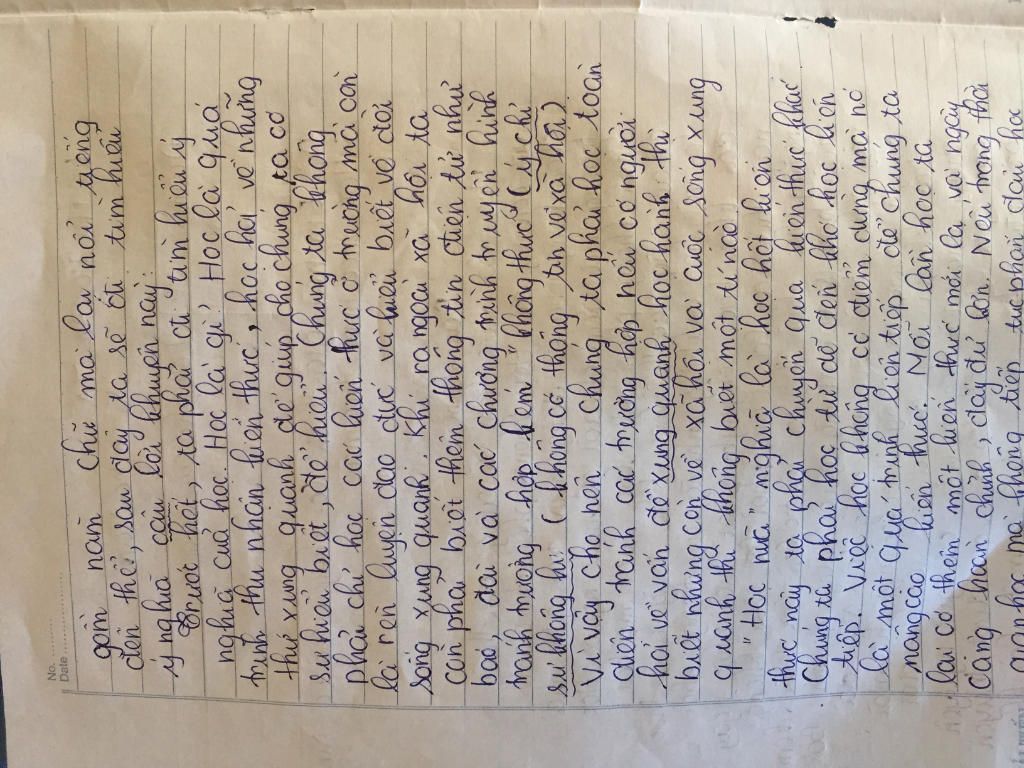 No. ........................
Date ........................
gồm năm chữ mà lại nổi tiếng
đến thế, sau đây ta sẽ đi tìm hiểu
ý nghĩa câu lời khuyên này:
Trướt hết, ta phải đi tìm hiểu ý
nghĩa của học. Học là gì? Học là quá
trình thu nhận kiến thức, học hỏi về những
thứ xung quanh để giúp cho chúng ta có
sự hiểu biết, để hiểu. Chúng ta không
phải chỉ học các kiến thức ở trường mà còn
là rèn luyện đạo đức và hiểu biết về đời
sống xung quanh. Khi ra ngoài xã hội ta
cần phải biết thêm thông tin điện tử như
báo, đài và các chương trình truyền hình
tránh trường hợp kém "không thức" (ý chỉ
sự không hiểu (không có thông tin về xã hội)
Vì vậy cho nên chúng ta phải học toàn
diện tránh các trường hợp nói có người
hỏi về vấn đề xung quanh học hành thì
biết nhưng còn về xã hội và cuộc sống xung
quanh thì không biết một tí nào
"Học nữa" nghĩa là học hết kiến
thức này ta phải chuyển qua kiến thức khác
Chúng ta phải học từ dễ đến khó học liên
tiếp. Việc học không có điểm dừng mà nó
là một quá trình liên tiếp để chúng ta
nâng cao kiến thức. Mỗi lần học ta
lại có thêm một kiến thức mới lạ và ngày
càng hoàn chỉnh, đầy đủ hơn. Nếu trong thời
gian học mà không tiếp tục phấn đấu học